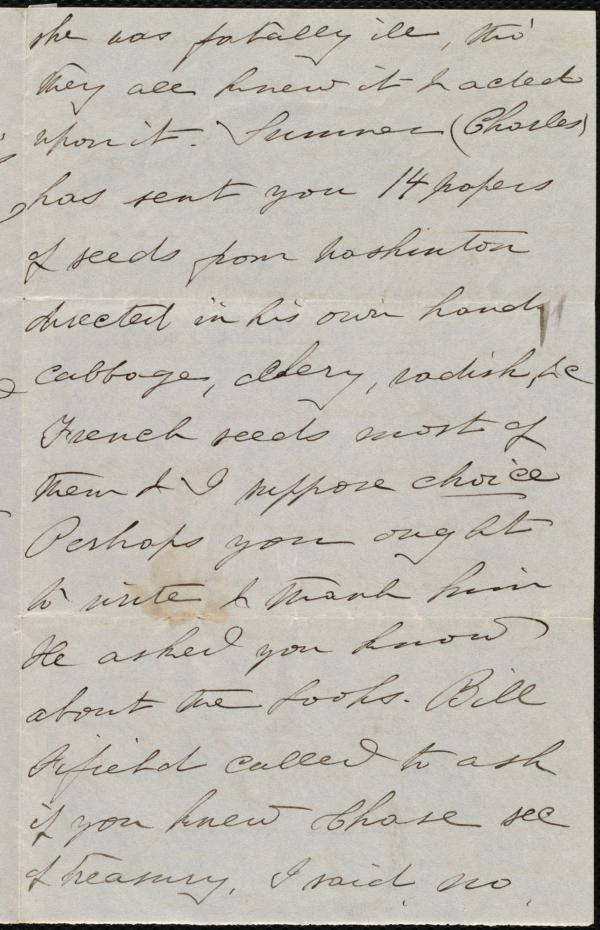 she was fatally ill, tho'
they all knew it & acted
upon it. Sumner (Charles)
has sent you 14 papers
of seeds from Washinton
directed in his own hand
cabbage, celery, radish, &c
French seeds most of
them & I suppose choice
Perhaps you ought
to write & thank him
He asked you know
about the books. Bill
Fifield called to ask
if you knew Chase sec
of treasury. I said, no,